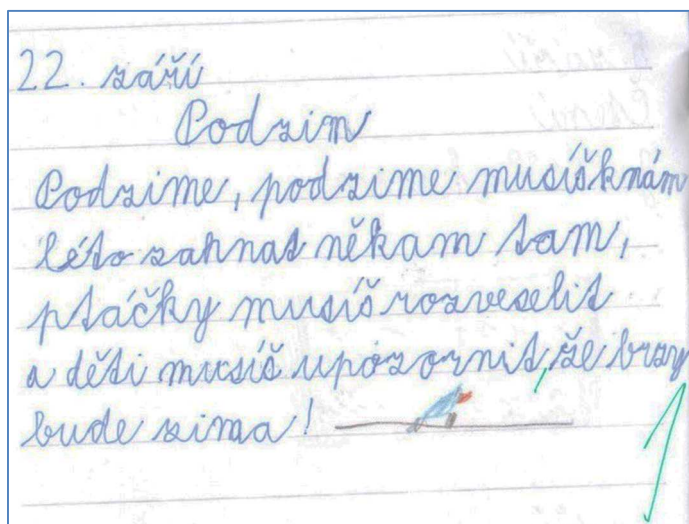 22. září
Podzim
Podzime, podzime musíš k nám
léto zahnat někam tam,
ptáčky musíš rozveselit
a děti musíš upozornit, že brzy
bude zima!
1